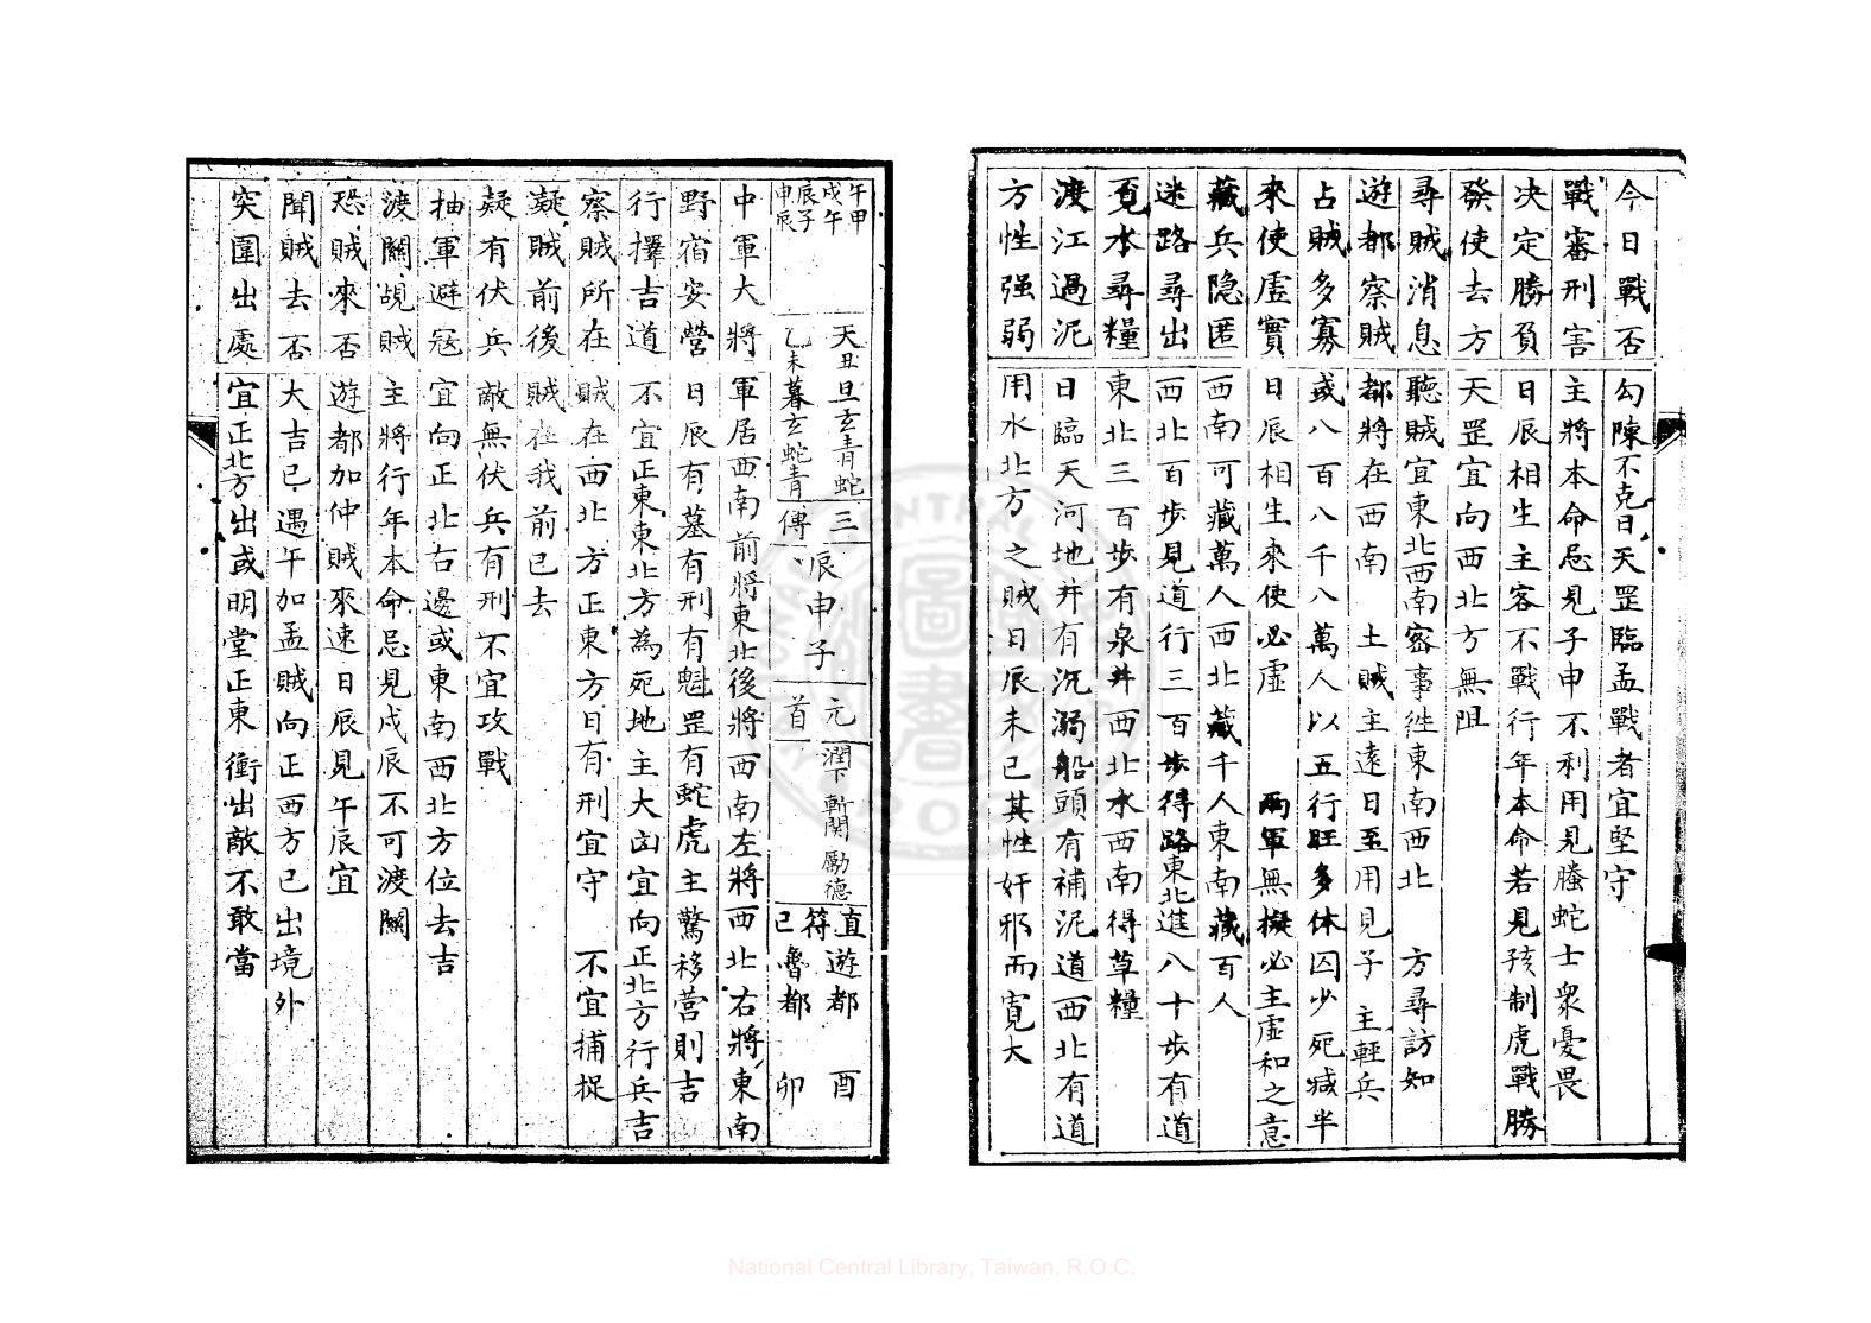 今日戰否 勾陳不克日天罡臨孟戰者宜堅守
戰審刑害 主將本命忌見子申不利用見螣蛇士衆憂畏
决定勝負 日辰相生主客不戰行年本命若見孩制虎戰勝
發使去方 天罡宜向西北方無阻
尋賊消息 聽賊宜東北西南密事往東南西北 方尋訪知
遊都察賊 都將在西南 土賊主遠日至用見子 主輕兵
占賊多寡 或八百八千八萬人以五行旺多休囚少死减半
來使虛實 日辰相生來使必虛 兩軍無擬必主虛和之意
藏兵隐匿 西南可藏萬人西北藏千人東南藏百人
迷路尋出 西北百步見道行三百步得路東北進八十步有道
覓水尋糧 東北三百步有泉井西北水西南得草糧
渡江過泥 日臨天河地井有沉溺船頭有補泥道西北有道
方性强弱 用水北方之賊日辰未已其性奸邪而寛大
午甲 戌午 辰子 申辰
天丑旦玄青蛇
乙未暮玄蛇青
三傳 辰申子
元首 潤下 斬関 勵德
直符已 遊都 酉 魯都 卯
中軍大將 軍居西南前將東北後將西南左將西北右將東南
野宿安營 日辰有墓有刑有魁罡有蛇虎主驚移營則吉
行擇吉道 不宜正東東北方為死地主大凶宜向正北方行兵吉
察賊所在 賊在西北方正東方日有刑宜守 不宜捕捉
疑賊前後 賊在我前已去
疑有伏兵 敵無伏兵有刑不宜攻戰
抽軍避冦 宜向正北右邊或東南西北方位去吉
渡關覘賊 主將行年本命忌見戌辰不可渡關
恐賊來否 遊都加仲賊來速日辰見午辰宜
聞賊去否 大吉已過午加孟賊向正西方已出境外
突圍出處 宜正北方出或明堂正東衝出敵不敢當
National Central Library, Taiwan, R.O.C.